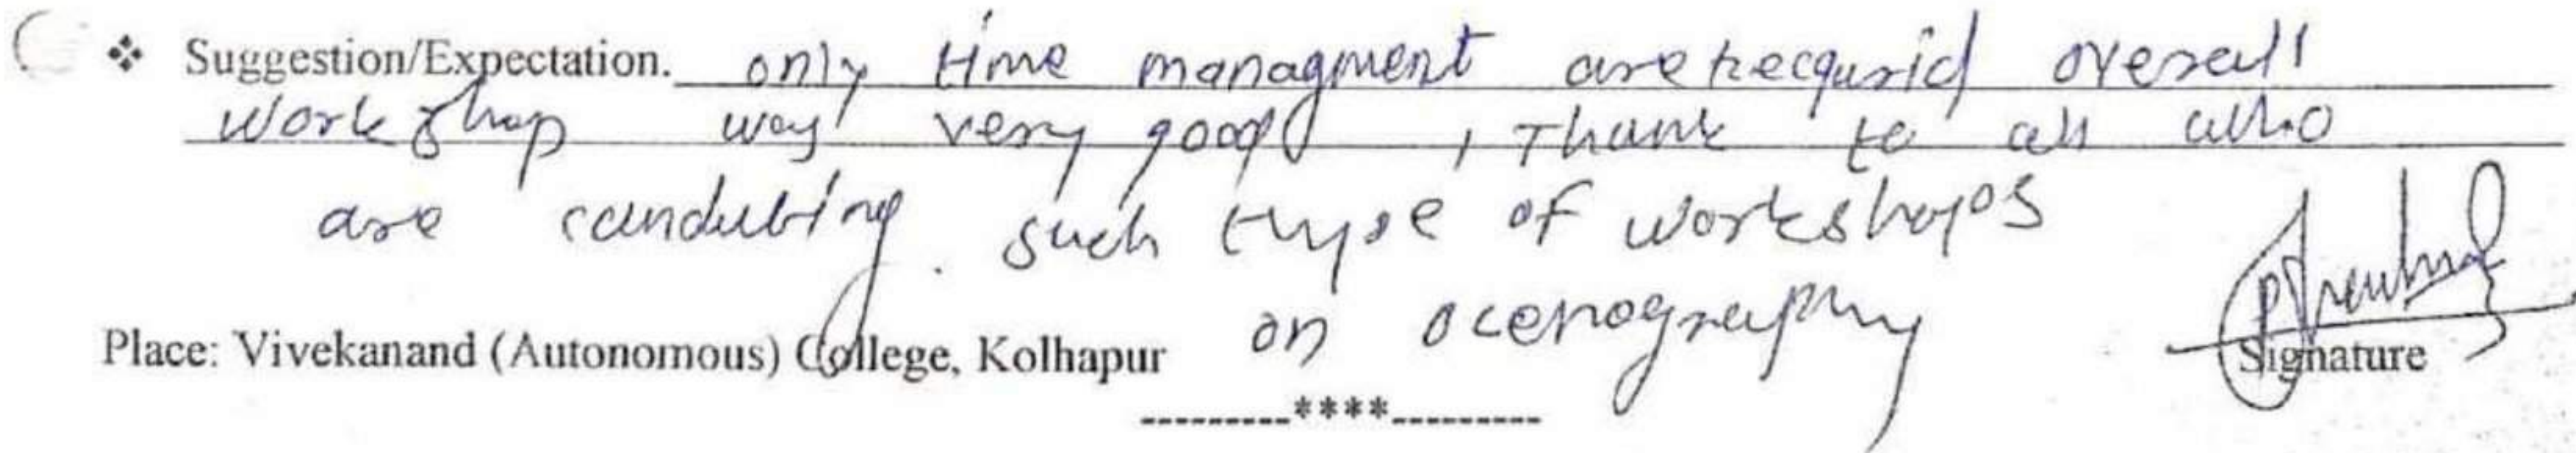 ❖ Suggestion/Expectation. only time managment are recqurid overall
workshop way very good , Thank to all who
are conducting. such thyse of workshops
on ocenography
Place: Vivekanand (Autonomous) College, Kolhapur
Signature
---------****---------